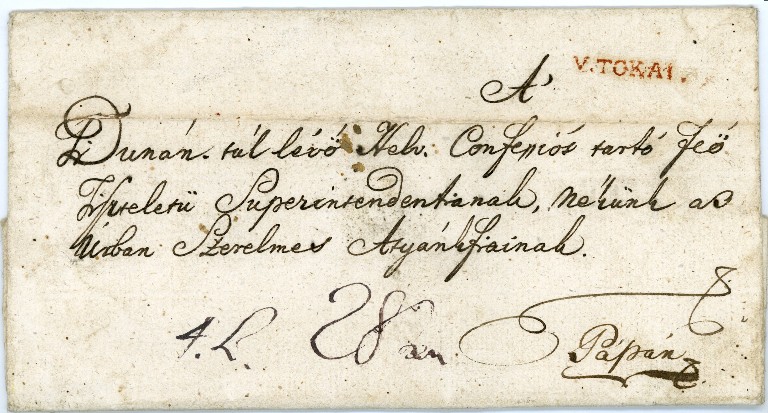 V. TOKAI.
A'
Dunán-túl lévő Helv. Confessiós tartó Feő
Tiszteletü Superintendentianak, nekünk az
Urban Szerelmes Atyánkfiainak.
4. L. 28 xr
Pápán